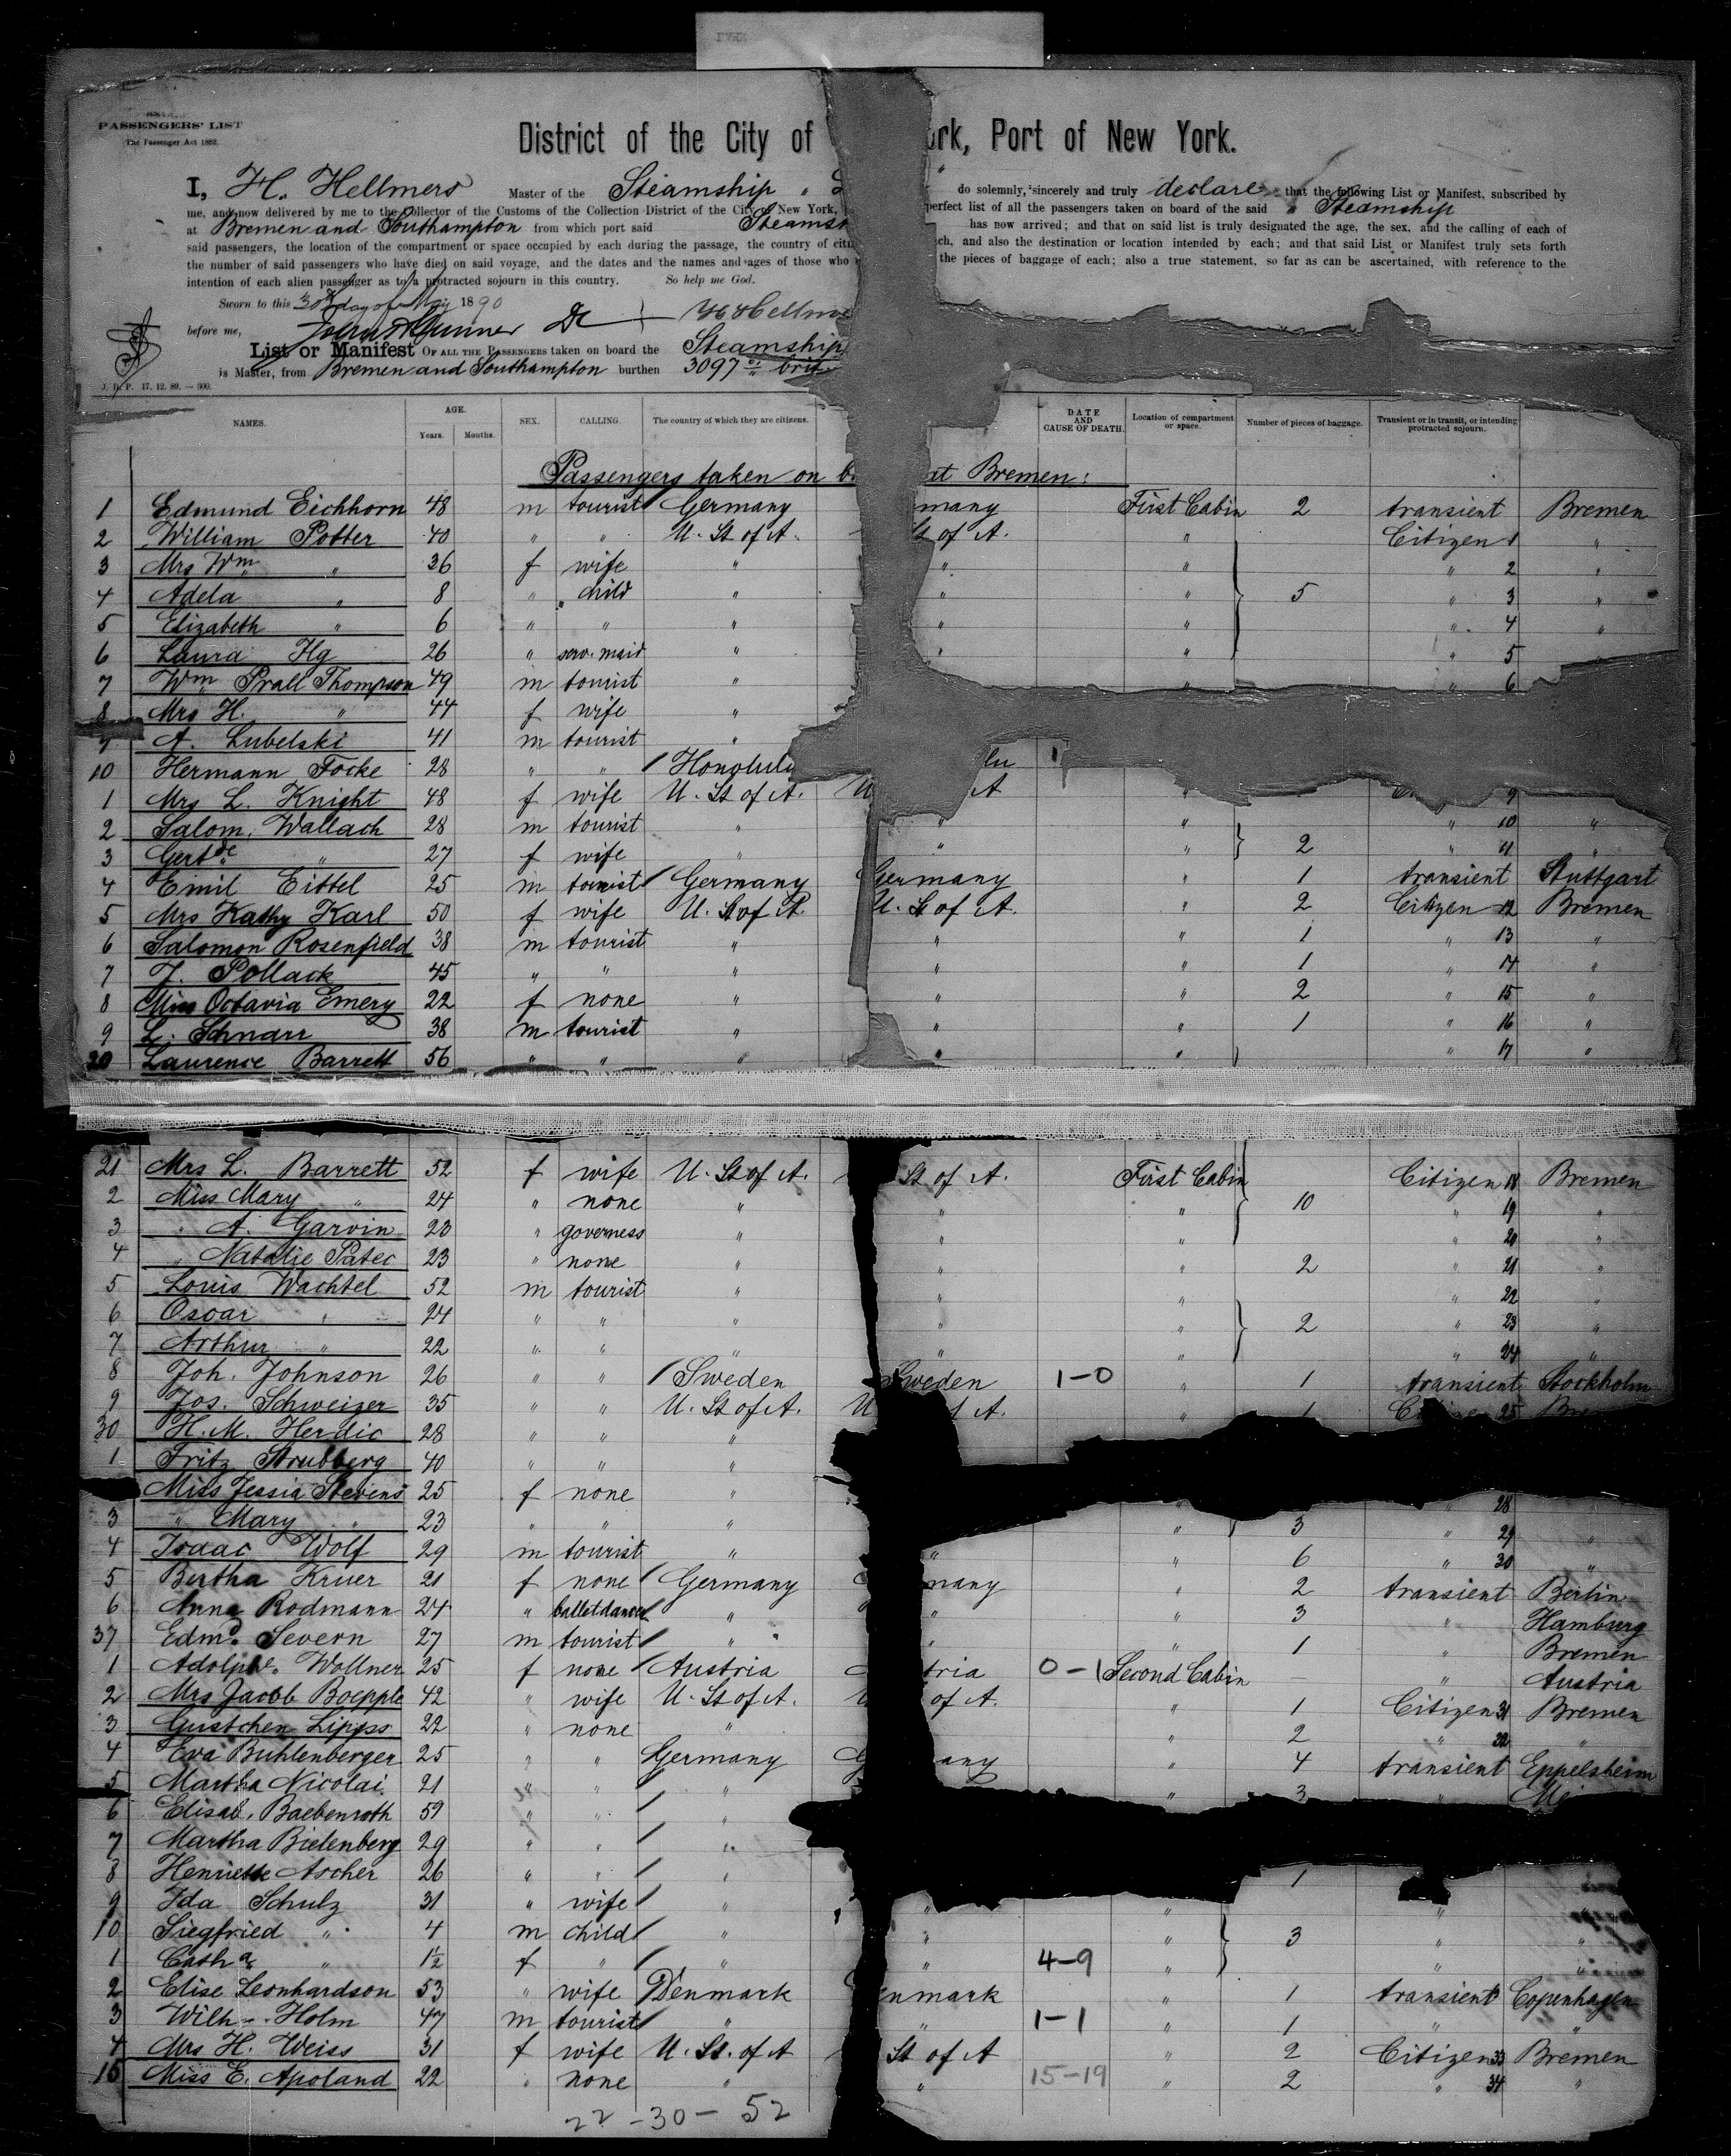 PASSENGERS' LIST
The Passenger Act 1882.
District of the City of ork, Port of New York.
I, H. Hellmers Master of the Steamship " do solemnly, sincerely and truly declare that the following List or Manifest, subscribed by
me, and now delivered by me to the Collector of the Customs of the Collection District of the City of New York, perfect list of all the passengers taken on board of the said " Steamship
at Bremen and Southampton from which port said Steams has now arrived; and that on said list is truly designated the age, the sex, and the calling of each of
said passengers, the location of the compartment or space occupied by each during the passage, the country of citi ch, and also the destination or location intended by each; and that said List or Manifest truly sets forth
the number of said passengers who have died on said voyage, and the dates and the names and ages of those who the pieces of baggage of each; also a true statement, so far as can be ascertained, with reference to the
intention of each alien passenger as to a protracted sojourn in this country. So help me God.
Sworn to this 30th day of May 1890
before me, H Hellme
List or Manifest OF ALL THE PASSENGERS taken on board the Steamship
is Master, from Bremen and Southampton burthen 3097 brit
J. D. P. 17. 12. 89. — 300.
NAMES. AGE. SEX. CALLING. The country of which they are citizens. DATE AND CAUSE OF DEATH. Location of compartment or space. Number of pieces of baggage. Transient or in transit, or intending protracted sojourn.
Years. Months.
Passengers taken on b at Bremen:
1 Edmund Eichhorn 48 m tourist Germany many First Cabin 2 transient Bremen
2 William Potter 40 " " U. St of A. St of A. " Citizen 1 "
3 Mrs Wm " 36 f wife " " " " 2 "
4 Adela " 8 " child " " " 5 " 3 "
5 Elizabeth " 6 " " " " " " 4 "
6 Laura Hg 26 " serv. maid " " " " 5
7 Wm Prall Thompson 49 m tourist " " " 6
8 Mrs H. " 44 f wife "
9 A. Lubelski 41 m tourist "
10 Hermann Focke 28 " " Honolulu lu 1
1 Mrs L. Knight 48 f wife U. St of A. U A " 9
2 Salom. Wallach 28 m tourist " " " " 10 "
3 Gertde " 27 f wife " " " 2 " 11 "
4 Emil Eittel 25 m tourist Germany Germany " 1 transient Stuttgart
5 Mrs Kathy Karl 50 f wife U. St of A. U. St of A. " 2 Citizen 12 Bremen
6 Salomon Rosenfield 38 m tourist " " " 1 " 13 "
7 J. Pollack 45 " " " " " 1 " 14 "
8 Miss Octavia Emery 22 f none " " " 2 " 15 "
9 L. Schnarr 38 m tourist " " " 1 " 16 "
20 Laurence Barrett 56 " " " " " " 17 "
21 Mrs L. Barrett 52 f wife U. St of A. St of A. First Cabin Citizen 18 Bremen
2 Miss Mary " 24 " none " " " 10 " 19 "
3 " A. Garvin 23 " governess " " " " 20 "
4 " Natalie Patec 23 " none " " " 2 " 21 "
5 Louis Wachtel 52 m tourist " " " " 22 "
6 Oscar " 24 " " " " " 2 " 23 "
7 Arthur " 22 " " " " " " 24 "
8 Joh. Johnson 26 " " Sweden Sweden 1-0 " 1 transient Stockholm
9 Jos. Schweizer 35 " " U. St of A. U A. " 1 Citizen 25 Bre
30 H. M. Herdic 28 " " "
1 Fritz Strubberg 40 " " "
Miss Jessia Stevens 25 f none " " " 28
3 " Mary " 23 " " " " 3 " 29 "
4 Isaac Wolf 29 m tourist " " " 6 " 30 "
5 Bertha Kruer 21 f none Germany many " 2 transient Berlin
6 Anna Rodmann 24 " balletdancer " " " 3 " Hamburg
37 Edmd. Severn 27 m tourist " " " 1 " Bremen
1 Adolphe. Wollner 25 f none Austria tria 0-1 Second Cabin - " Austria
2 Mrs Jacob Boepple 42 " wife U. St of A. of A. " 1 Citizen 31 Bremen
3 Gustchen Lippss 22 " none " " 2 " 32 "
4 Eva Buhlenberger 25 " " Germany any " 4 transient Eppelsheim
5 Martha Nicolai 21 " " " " 3
6 Elisab. Baebenroth 59 " " "
7 Martha Bielenberg 29 " " "
8 Henriette Ascher 26 " " " 1
9 Ida Schulz 31 " wife " " " "
10 Siegfried " 4 m child " " " 3 " "
1 Catha " 1½ f " " " 4-9 " "
2 Elise Leonhardson 53 " wife Denmark nmark " 1 transient Copenhagen
3 Wilh. Holm 47 m tourist " " 1-1 " 1 " "
4 Mrs H. Weiss 31 f wife U. St. of A St of A " 2 Citizen 33 Bremen
15 Miss E. Apoland 22 " none " " 15-19 " 2 " 34 "
22-30-52